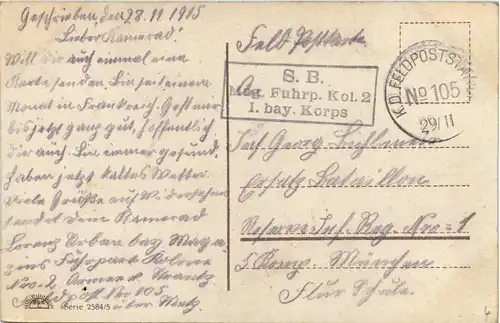 Geschrieben den 28.11 1915
Lieber Kamerad!
Will dir auch einmal eine
Karte senden. Bin seit einem
Monat in Frankreich. Gest mir
bis jetzt ganz gut, hoffentlich
dir auch. Bin immer gesund.
haben jetzt kaltes Wetter.
viele Grüße auf Wiedersehen
sendet dein Kamerad
Lorenz Urban bay Maga
zins Fuhrpark Kolone
Nro. 2 Armee
Feldpost Nro 105
über Metz
Feld Postkarte
S. B.
Mag. Fuhrp. Kol. 2
I. bay. Korps
K.D. FELDPOSTSTATION
No 105
29/11
An
Inf. Georg
Ersatz Bataillon
Reserve Inf. Reg. Nro = 1
5 Komp. München
Flur Schule.
Serie 2584/5